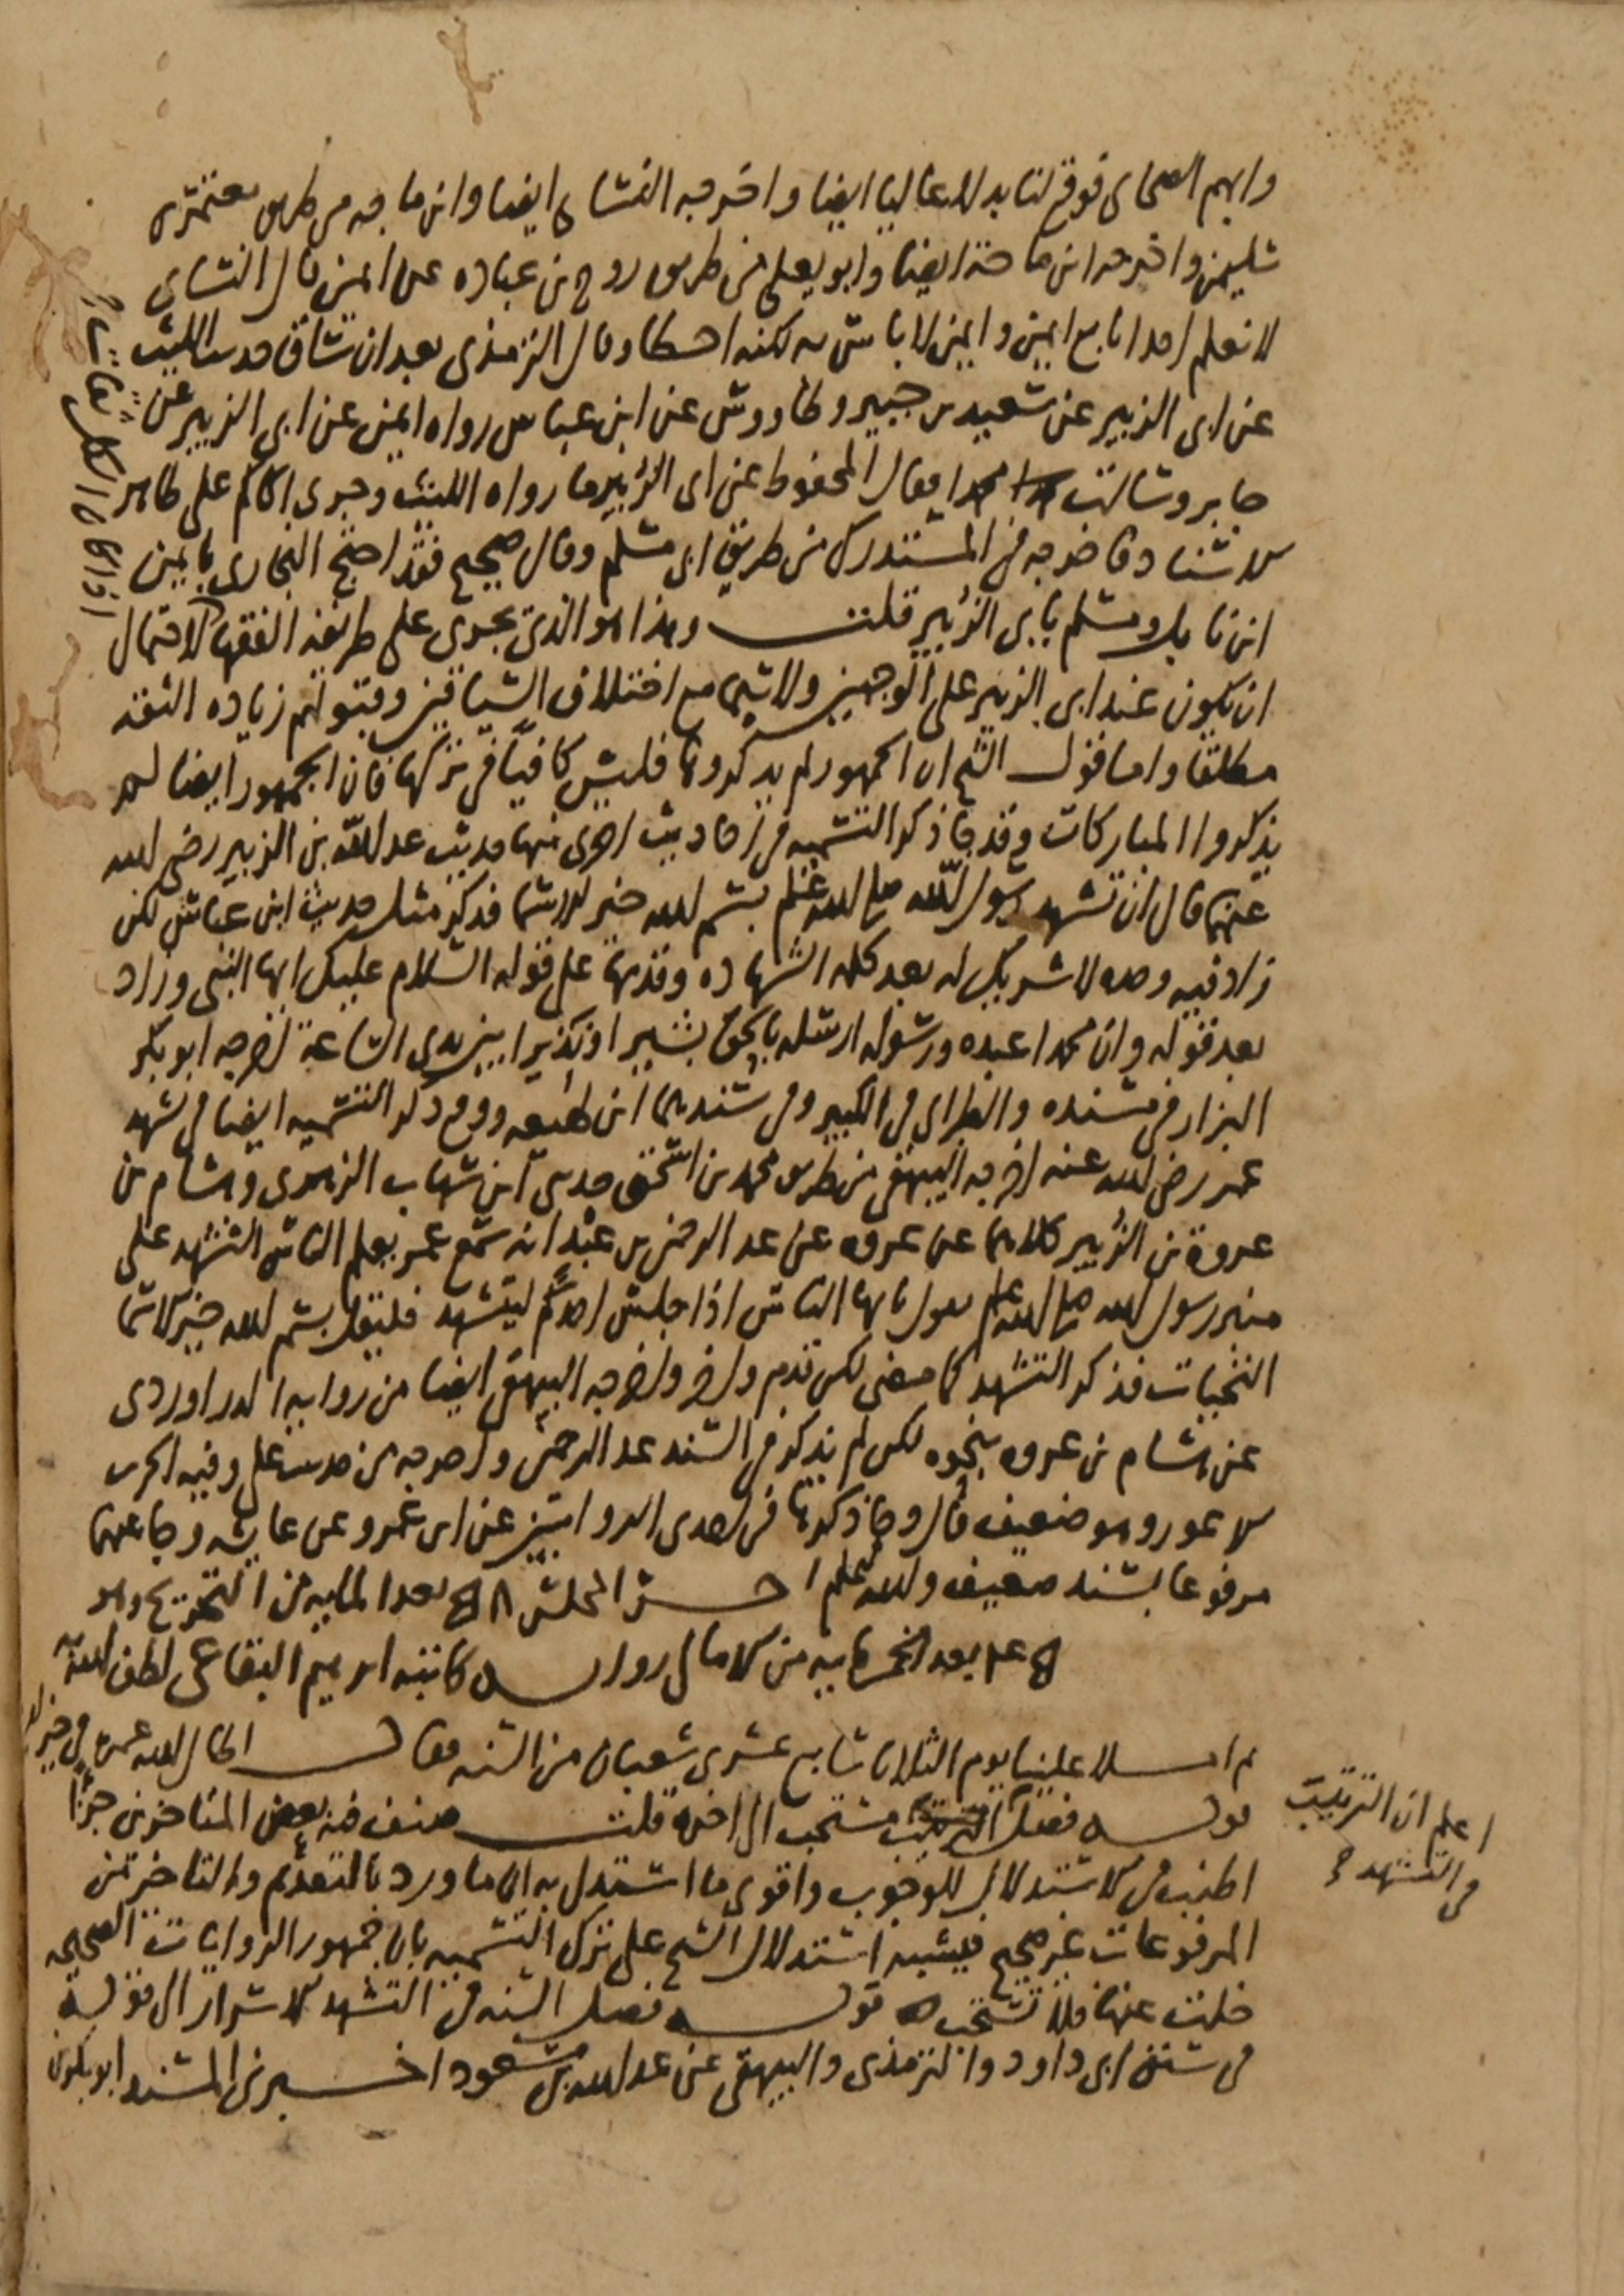 وابهم الصحابي فوقع لنا بدلا عاليا ايضا واخرجه النسائي ايضا وابن ماجه من طريق معتمر بن
سليمن واخرجه ابن ماجة ايضا وابو يعلى من طريق روح بن عباده عن ايمن قال النسائي
لا نعلم احدا تابع ايمن وايمن لا باس به لكنه اخطا وقال الترمذي بعد ان ساق حديث الليث
عن ابي الزبير عن سعيد بن جبير وطاووس عن ابن عباس رواه ايمن عن ابي الزبير عن
جابر وسالت محمدا فقال المحفوظ عن ابي الزبير ما رواه الليث وجرى الحاكم على ظاهر
الاسناد فاخرجه في المستدرك من طريق ابي مسلم وقال صحيح فقد احتج البخاري بايمن
ابن نابل ومسلم بابي الزبير قلت وهذا هو الذي يجري على طريقة الفقها لاحتمال
ان يكون عند ابي الزبير على الوجهين ولا سيما مع اختلاف السياقين وقبولهم زياده الثقة
مطلقا واما قول الشيخ ان الجمهور لم يذكروها فليس كافيا في تركها فان الجمهور ايضا لم
يذكروا المباركات وقد جا ذكر التسميه في احاديث اخرى منها حديث عبد الله بن الزبير رضي الله
عنهما قال ان تشهد رسول الله صلى الله عليه وسلم بسم الله خير الاسما فذكر مثل حديث ابن عباس لكن
زاد فيه وحده لا شريك له بعد كلمه الشهاده وقدمها على قوله السلام عليك ايها النبي وزاد
بعد قوله وان محمدا عبده ورسوله ارسله بالحق بشيرا ونذيرا بين يدي الساعة اخرجه ابو بكر
البزار في مسنده والطبراني في الكبير وفي سندهما ابن لهيعه ووقع ذكر التسميه ايضا في تشهد
عمر رضي الله عنه اخرجه البيهقي من طريق محمد بن اسحق حدثني ابن شهاب الزهري وهشام بن
عروة بن الزبير كلاهما عن عروه عن عبد الرحمن بن عبد انه سمع عمر يعلم الناس التشهد على
منبر رسول الله صلى الله عليه وسلم يقول يا ايها الناس اذا جلس احدكم ليتشهد فليقل بسم الله خير الاسما
التحيات فذكر التشهد كما مضى لكن قدم واخر واخرجه البيهقي ايضا من روايه الدراوردي
عن هشام بن عروه بنحوه لكن لم يذكر في السند عبد الرحمن واخرجه من حديث علي وفيه الحرث
الاعور وهو ضعيف قال وجا ذكرها في احدى الروايتين عن ابن عمر وعن عايشه وجا عنهما
مرفوعا بسند ضعيف والله اعلم اخر المجلس بعد المايه من التخريج وهو
بعد الخمسمايه من الامالي رواية كاتبه ابرهيم البقاعي لطف الله به
ثم املا علينا يوم الثلاثا سابع عشري شعبان من السنه فقال
قوله فصل الترتيب مستحب الى اخره قلت صنف فيه بعض المتاخرين جزا
اطنب في الاستدلال للوجوب واقوى ما استدل به ان ما ورد بالتقديم والتاخير من
المرفوعات غير صحيح فيشبه استدلال الشيخ على ترك التسميه بان جمهور الروايات الصحيحه
خلت عنها فلا تستحب قوله فصل السنه في التشهد الاسرار الى قوله
في سنن ابي داود والترمذي والبيهقي عن عبد الله بن مسعود اخبرني المسند ابو بكر بن
اعلم ان الترتيب
في التشهد